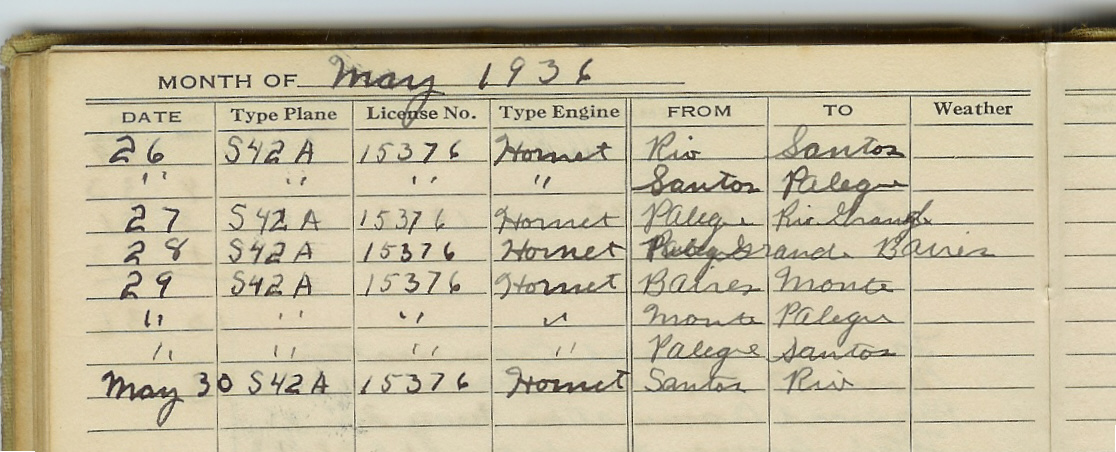 MONTH OF May 1936
DATE Type Plane License No. Type Engine FROM TO Weather
26 S42A 15376 Hornet Rio Santos
" " " " Santos Palegre
27 S42A 15376 Hornet Palegre Rio Grande
28 S42A 15376 Hornet Grande Baires
29 S42A 15376 Hornet Baires Monte
" " " " Monte Palegre
" " " " Palegre Santos
May 30 S42A 15376 Hornet Santos Rio